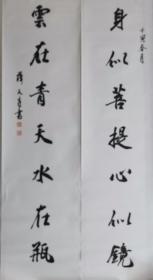 身似菩提心似镜
雲在青天水在瓶